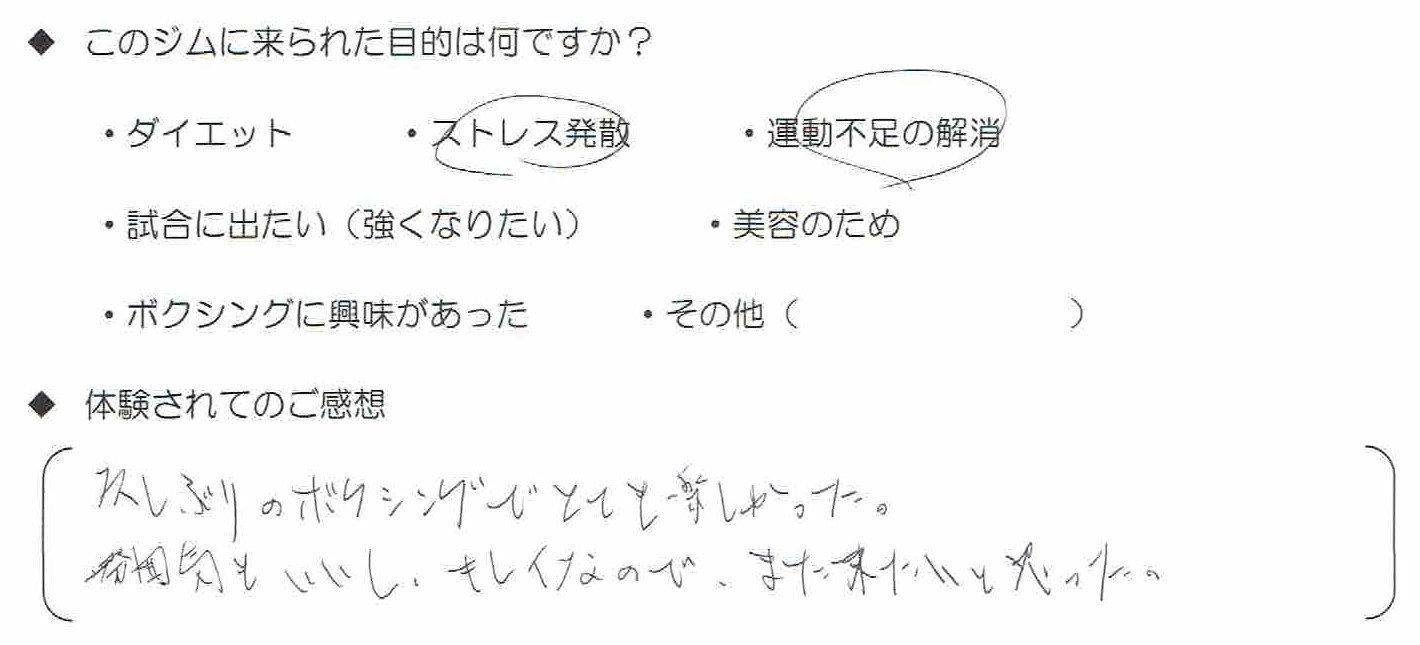 ◆ このジムに来られた目的は何ですか?
・ダイエット ・ストレス発散 ・運動不足の解消
・試合に出たい(強くなりたい) ・美容のため
・ボクシングに興味があった ・その他( )
◆ 体験されてのご感想
久しぶりのボクシングでとても楽しかった。
雰囲気もいいし、キレイなので、また来たいと思った。